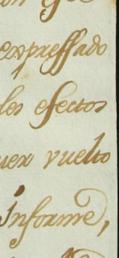 expressado
los efectos
uer vuelto
Informe,